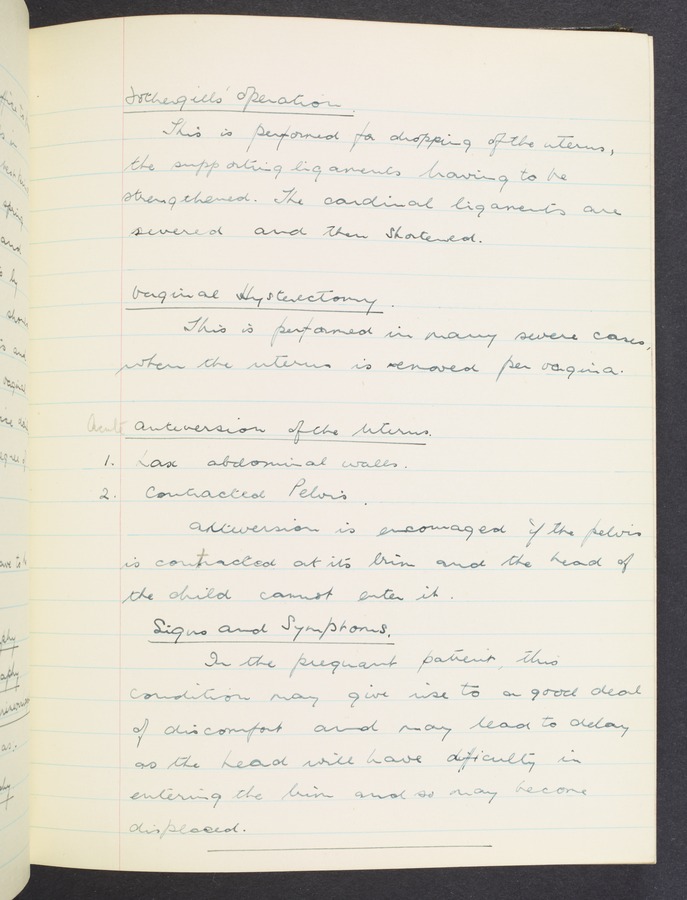 Fothergills' operation.
This is performed for dropping of the uterus,
the supporting ligaments having to be
strengthened. The cardinal ligaments are
severed and then shortened.
Vaginal Hysterectomy.
This is performed in many severe cases,
when the uterus is removed per vagina.
Acute anteversion of the Uterus.
1. Lax abdominal walls.
2. Contracted Pelvis.
Anteversion is encouraged if the pelvis
is contracted at its brim and the head of
the child cannot enter it.
Signs and Symptoms.
In the pregnant patient, this
condition may give rise to a good deal
of discomfort and may lead to delay
as the head will have difficulty in
entering the brim and so may become
displaced.